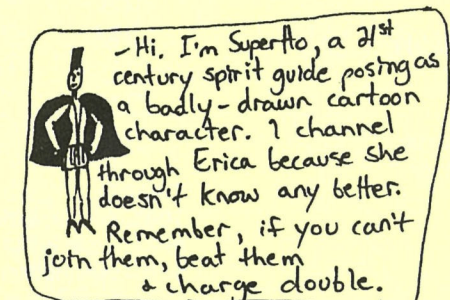 -Hi. I'm SuperHo, a 21st
century spirit guide posing as
a badly-drawn cartoon
character. I channel
through Erica because she
doesn't know any better.
Remember, if you can't
join them, beat them
& charge double.